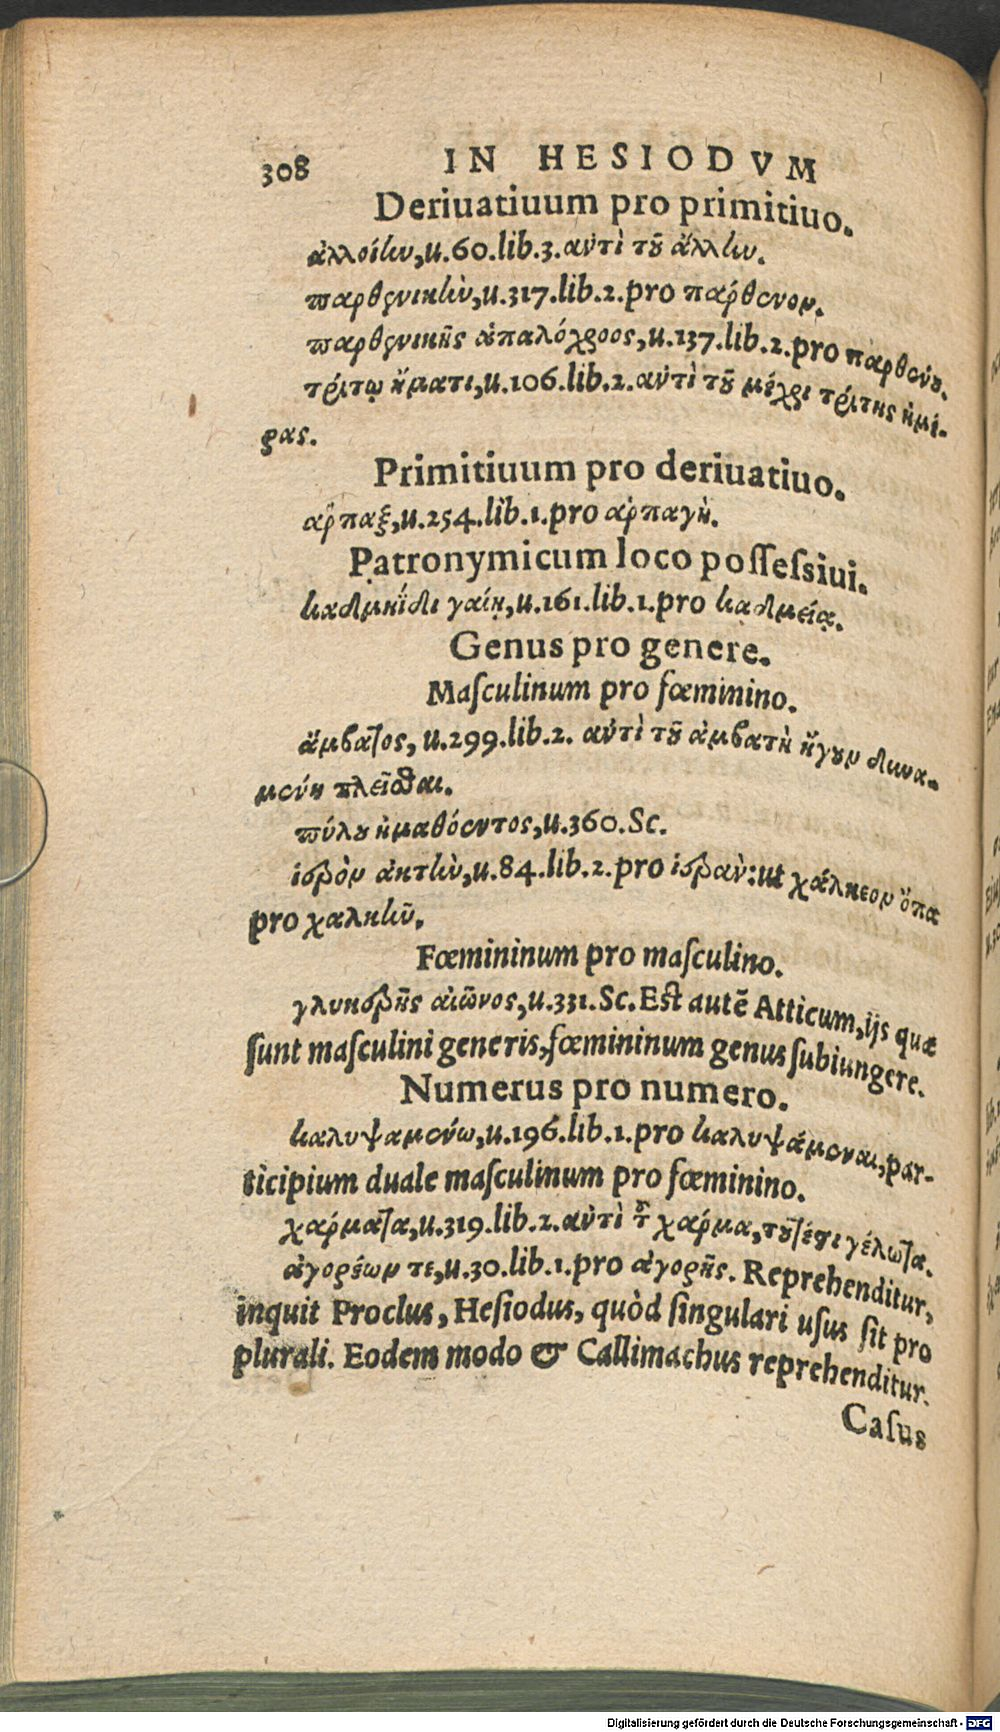 308 IN HESIODVM
Deriuatiuum pro primitiuo.
ἀλλοίων, u.60.lib.3.αὐτὶ τοῦ ἄλλων.
παρθενικὴν, u.317.lib.2.pro πάρθενον.
παρθενικῆς ἁπαλόχροος, u.137.lib.2.pro παρθένου.
τρίτῳ ἤματι, u.106.lib.2.αὐτὶ τοῦ μέχρι τρίτης ἡμέ-
ρας.
Primitiuum pro deriuatiuo.
ἅρπαξ, u.254.lib.1.pro ἁρπαγὴ.
Patronymicum loco poſſeſsiui.
καδμηΐδι γαίῃ, u.161.lib.1.pro καδμείᾳ.
Genus pro genere.
Maſculinum pro fœminino.
ἄμβατος, u.299.lib.2. αὐτὶ τοῦ ἀμβατὴ ἤγουν δυνα-
μένη πλεῖσθαι.
πύλου ἠμαθόεντος, u.360.Sc.
ἱερὸν ἀκτὴν, u.84.lib.2.pro ἱερὰν: ut χάλκεον ὄπα
pro χαλκῆν.
Fœmininum pro maſculino.
γλυκερῆς αἰῶνος, u.331.Sc.Eſt autē Atticum, ijs quæ
ſunt maſculini generis, fœmininum genus ſubiungere.
Numerus pro numero.
καλυψαμένω, u.196.lib.1.pro καλυψάμεναι, par-
ticipium duale maſculinum pro fœminino.
χάρματα, u.319.lib.2.αὐτὶ τοῦ χάρμα, τουτέστι γέλωτα.
ἀγορέων τε, u.30.lib.1.pro ἀγορῆς. Reprehenditur,
inquit Proclus, Heſiodus, quòd ſingulari uſus ſit pro
plurali. Eodem modo & Callimachus reprehenditur.
Caſus
Digitalisierung gefördert durch die Deutsche Forschungsgemeinschaft - DFG